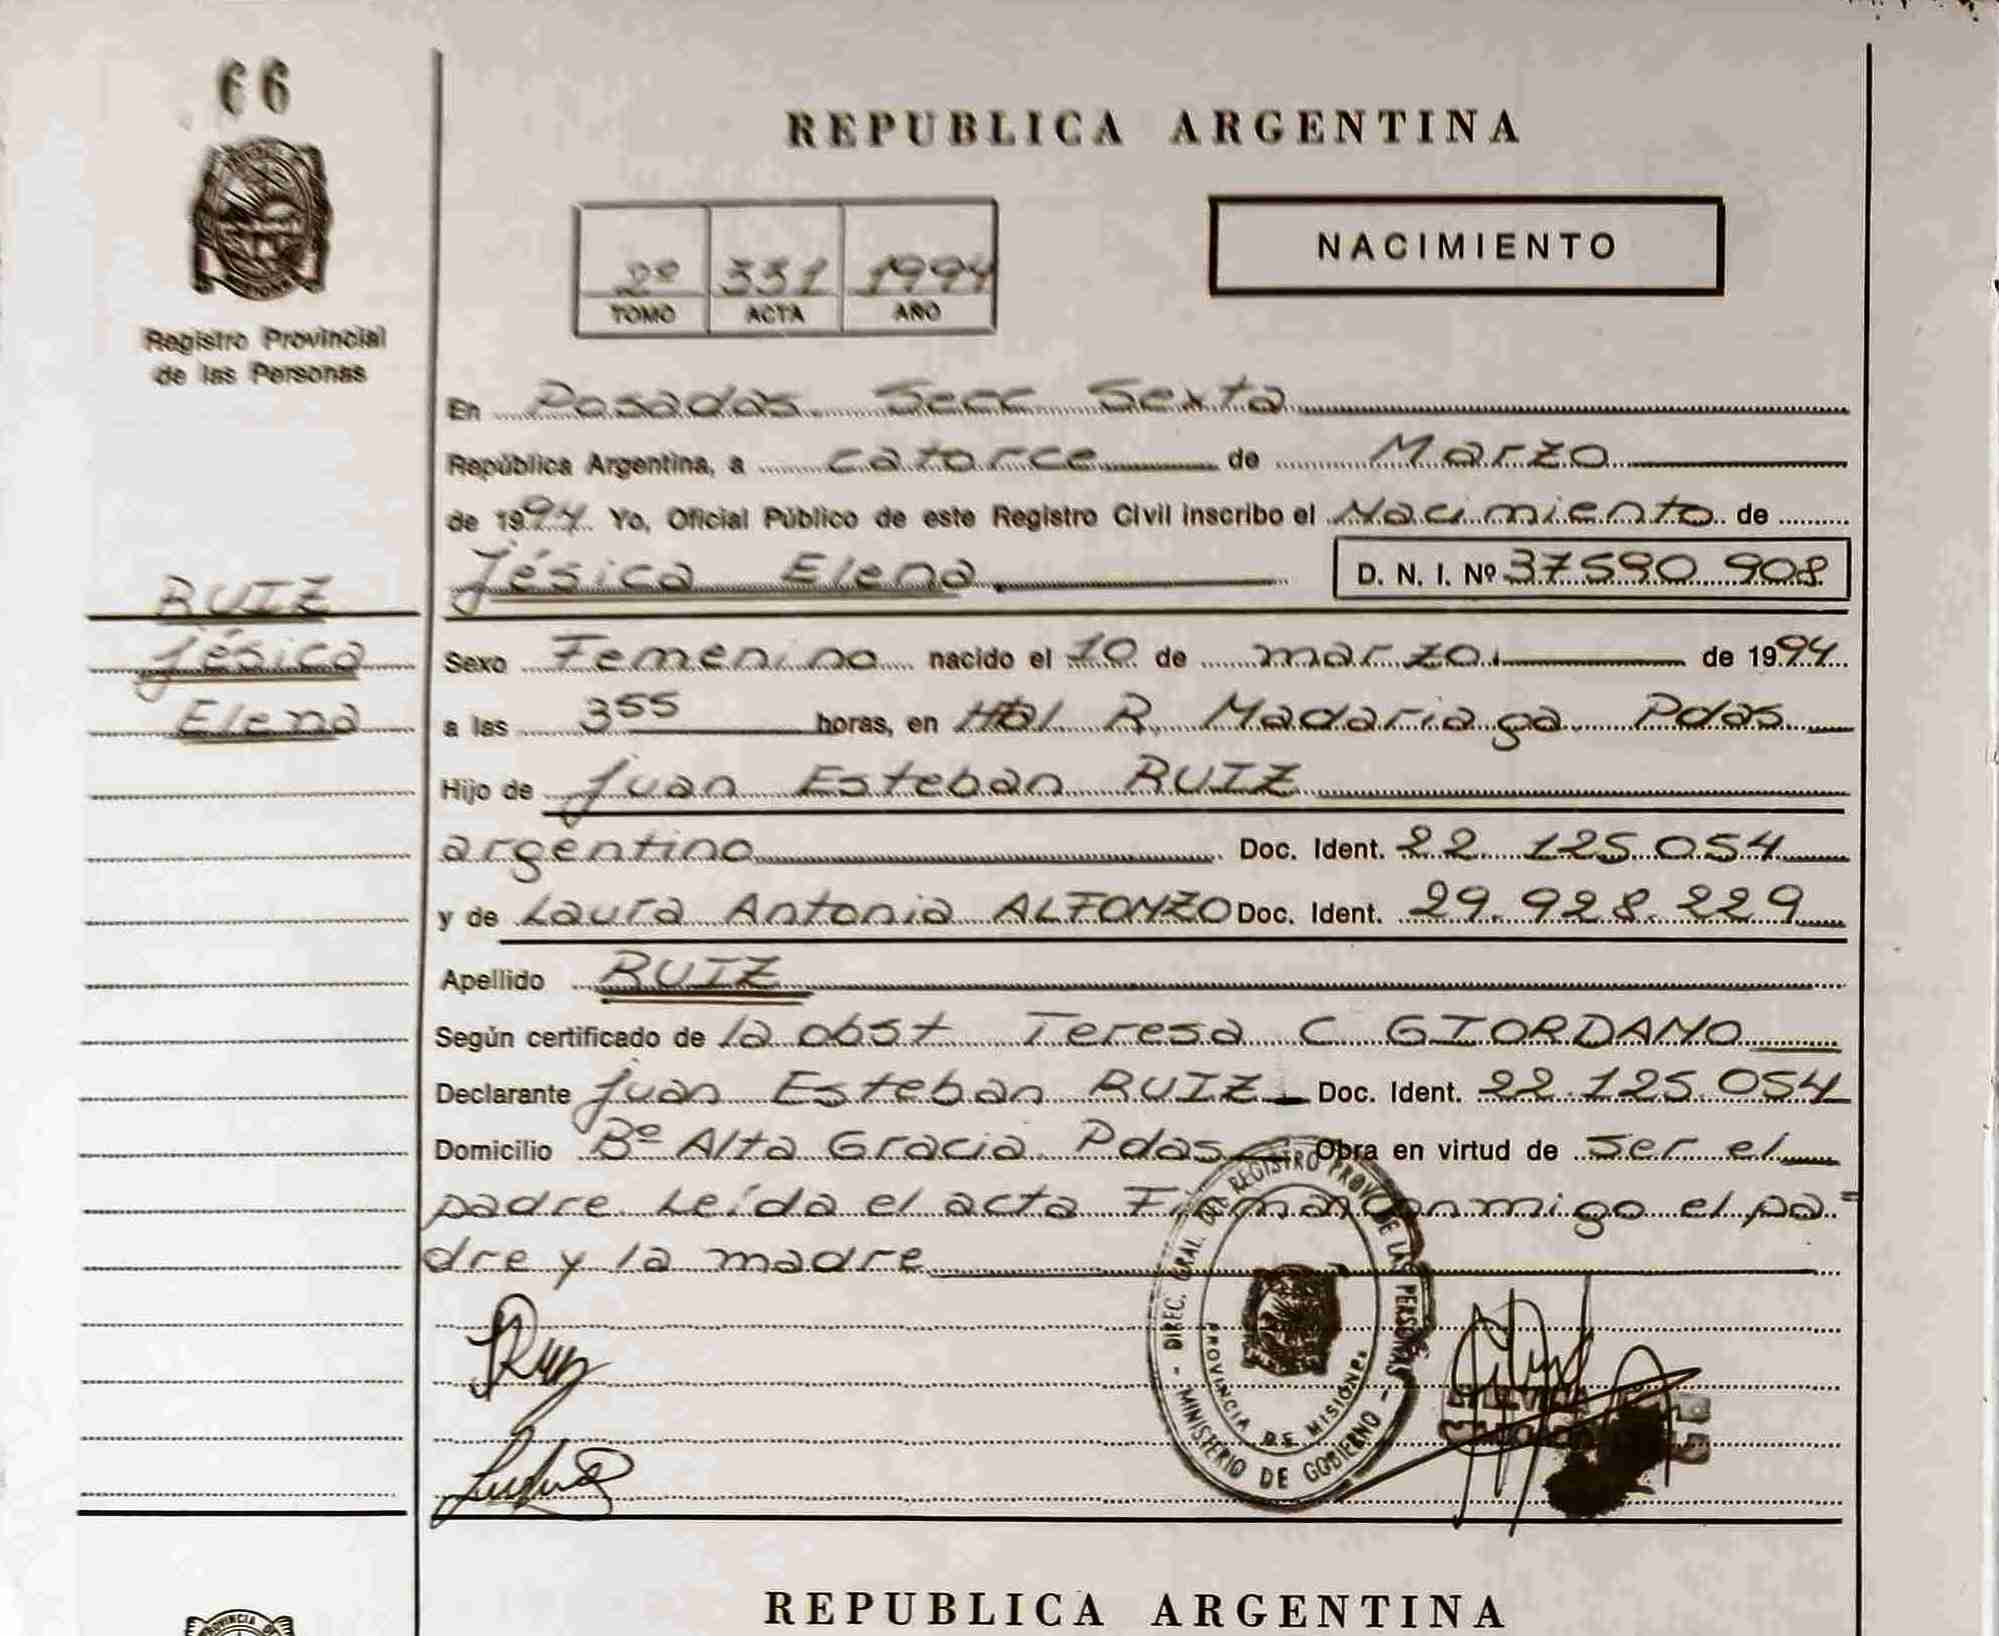 66
REPUBLICA ARGENTINA
2º 331 1994
TOMO ACTA AÑO
NACIMIENTO
Registro Provincial
de las Personas
En Posadas. Secc Sexta
República Argentina, a catorce de Marzo
de 1994 Yo, Oficial Público de este Registro Civil inscribo el Nacimiento de
Jésica Elena D. N. I. Nº 37590 908
RUIZ
Jésica
Elena
Sexo Femenino nacido el 10 de marzo de 1994
a las 3 55 horas, en Htal R. Madariaga Pdas
Hijo de Juan Esteban RUIZ
argentino Doc. Ident. 22 125 054
y de Laura Antonia ALFONZO Doc. Ident. 29.928.229
Apellido RUIZ
Según certificado de la obst Teresa C GIORDANO
Declarante Juan Esteban RUIZ Doc. Ident. 22.125.054
Domicilio Bº Alta Gracia Pdas Obra en virtud de ser el
padre. Leída el acta Firman conmigo el pa=
dre y la madre
DIREC. GRAL. DEL REGISTRO PROVC. DE LAS PERSONAS
MINISTERIO DE GOBIERNO
PROVINCIA DE MISIONES
REPUBLICA ARGENTINA
PROVINCIA